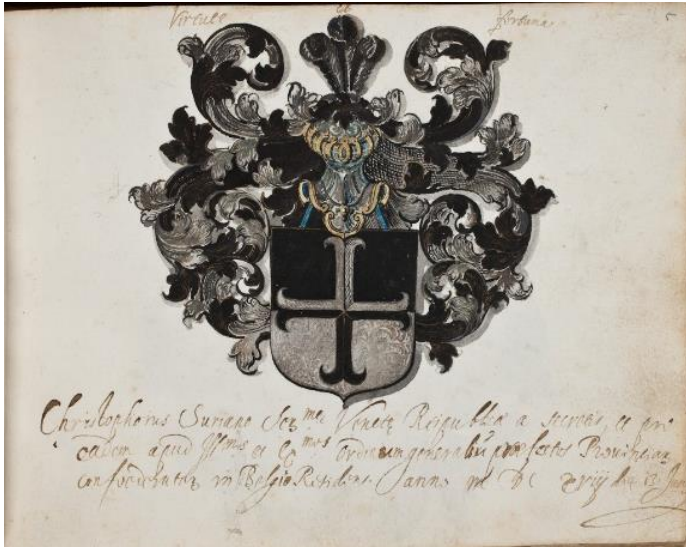 Virtute et fortuna 5
Christophorus Suriano Ser.mæ Venetæ Reipubblicæ a secretis, et pro
eadem apud Ill.mos et Ex.mos ordinum generaliũ præfectos Provinciarũ
confoederatar. in Belgio Residens. anno M DC